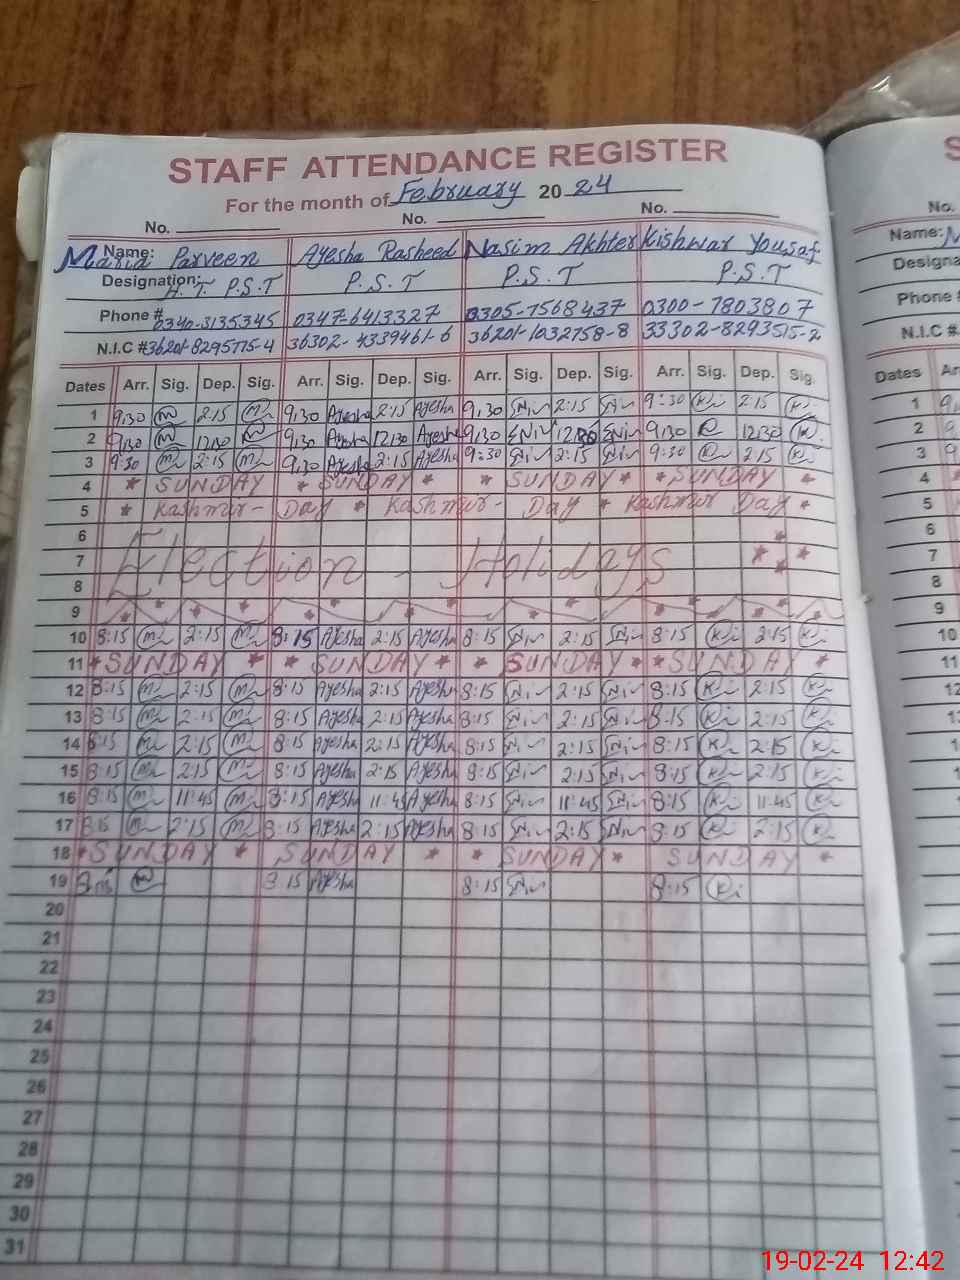 STAFF ATTENDANCE REGISTER
For the month of February 2024
No. No. No. No.
Name: Parveen Ayesha Rasheed Nasim Akhter Kishwar Yousaf Name:
Designation: H.T. P.S.T P.S.T P.S.T P.S.T Designa
Phone # 0340-3135345 0347-6413327 0305-7568437 0300-7803807 Phone #
N.I.C # 36201-8295775-4 36302-4339461-6 36201-1032758-8 33302-8293515-2 N.I.C #
Dates Arr. Sig. Dep. Sig. Arr. Sig. Dep. Sig. Arr. Sig. Dep. Sig. Arr. Sig. Dep. Sig. Dates
1 9,30 2:15 9,30 Ayesha 2:15 Ayesha 9,30 2:15 9:30 2:15 1
2 9,30 12,30 9,30 Ayesha 12,30 Ayesha 9,30 12,30 9,30 12,30 2
3 9:30 2:15 9,30 Ayesha 2:15 Ayesha 9:30 2:15 9:30 2:15 3
4 * SUNDAY * SUNDAY * SUNDAY * * SUNDAY * 4
5 * Kashmir - Day * Kashmir - Day * Kashmir Day * 5
6 6
7 Election - Holidays 7
8 8
9 9
10 8:15 2:15 8:15 Ayesha 2:15 Ayesha 8:15 2:15 8:15 2:15 10
11 * SUNDAY * * SUNDAY * * SUNDAY * * SUNDAY * 11
12 8:15 2:15 8:15 Ayesha 2:15 Ayesha 8:15 2:15 8:15 2:15 12
13 8:15 2:15 8:15 Ayesha 2:15 Ayesha 8:15 2:15 8:15 2:15 13
14 8:15 2:15 8:15 Ayesha 2:15 Ayesha 8:15 2:15 8:15 2:15 14
15 8:15 2:15 8:15 Ayesha 2:15 Ayesha 8:15 2:15 8:15 2:15 15
16 8:15 11:45 8:15 Ayesha 11:45 Ayesha 8:15 11:45 8:15 11:45 16
17 8:15 2:15 8:15 Ayesha 2:15 Ayesha 8:15 2:15 8:15 2:15 17
18 * SUNDAY * SUNDAY * * SUNDAY * SUNDAY * 18
19 8:15 8:15 Ayesha 8:15 8:15 19
20 20
21 21
22 22
23 23
24 24
25 25
26 26
27 27
28 28
29 29
30 30
31 31
19-02-24 12:42